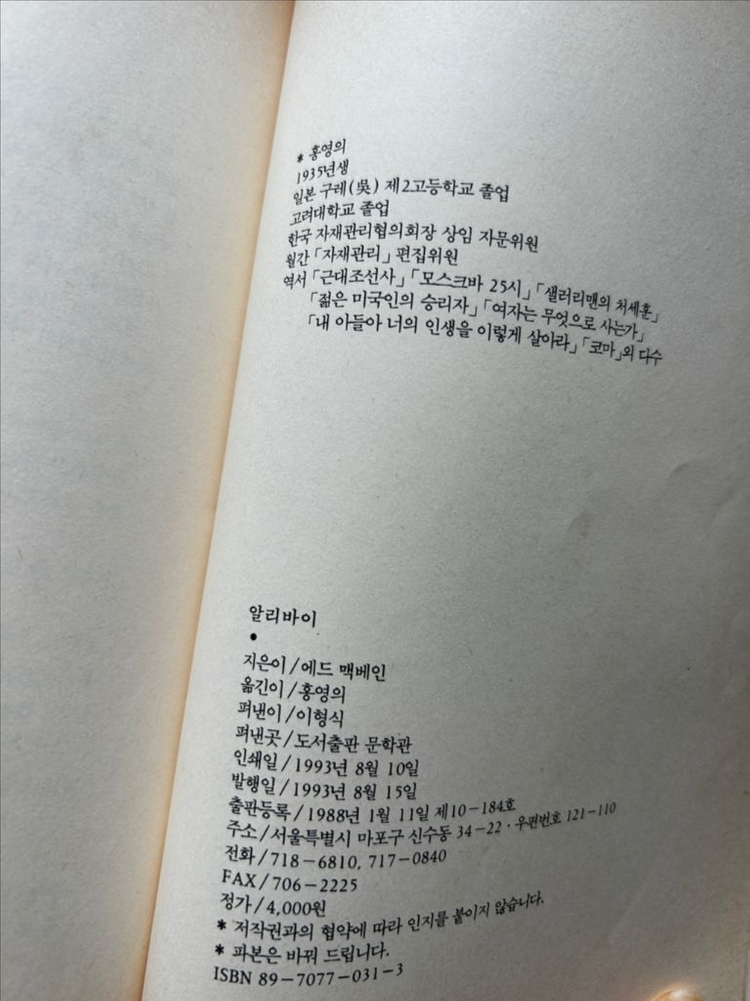 * 홍영의
1935년생
일본 구레(吳) 제2고등학교 졸업
고려대학교 졸업
한국 자재관리협의회장 상임 자문위원
월간 「자재관리」 편집위원
역서 「근대조선사」 「모스크바 25시」 「샐러리맨의 처세훈」
「젊은 미국인의 승리자」 「여자는 무엇으로 사는가」
「내 아들아 너의 인생을 이렇게 살아라」 「코마」외 다수
알리바이
●
지은이/에드 맥베인
옮긴이/홍영의
펴낸이/이형식
펴낸곳/도서출판 문학관
인쇄일/1993년 8월 10일
발행일/1993년 8월 15일
출판등록/1988년 1월 11일 제10-184호
주소/서울특별시 마포구 신수동 34-22·우편번호 121-110
전화/718-6810, 717-0840
FAX/706-2225
정가/4,000원
* 저작권과의 협약에 따라 인지를 붙이지 않습니다.
* 파본은 바꿔 드립니다.
ISBN 89-7077-031-3